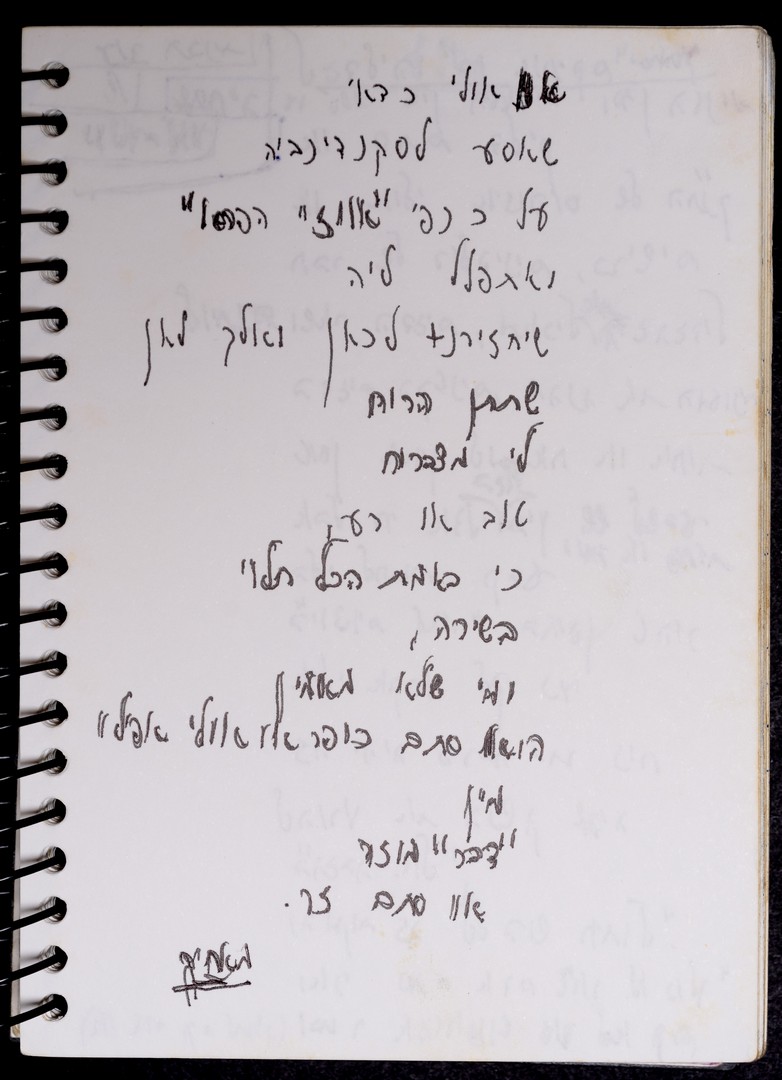 או אולי כדאי
שאסע לסקנדינביה
על כנפי "אווז" הפרא"
ואתפלל ליה
שיחזירני לכאן ואולך לאן
שתתן הרוח
לי מצברוח
טוב או רע,
כי באמת הכל תלוי
בשירה,
ומי שלא מאמין
הוא סתם כופר או אולי אפילו
מין
"דבר" מוזר
או סתם זר.